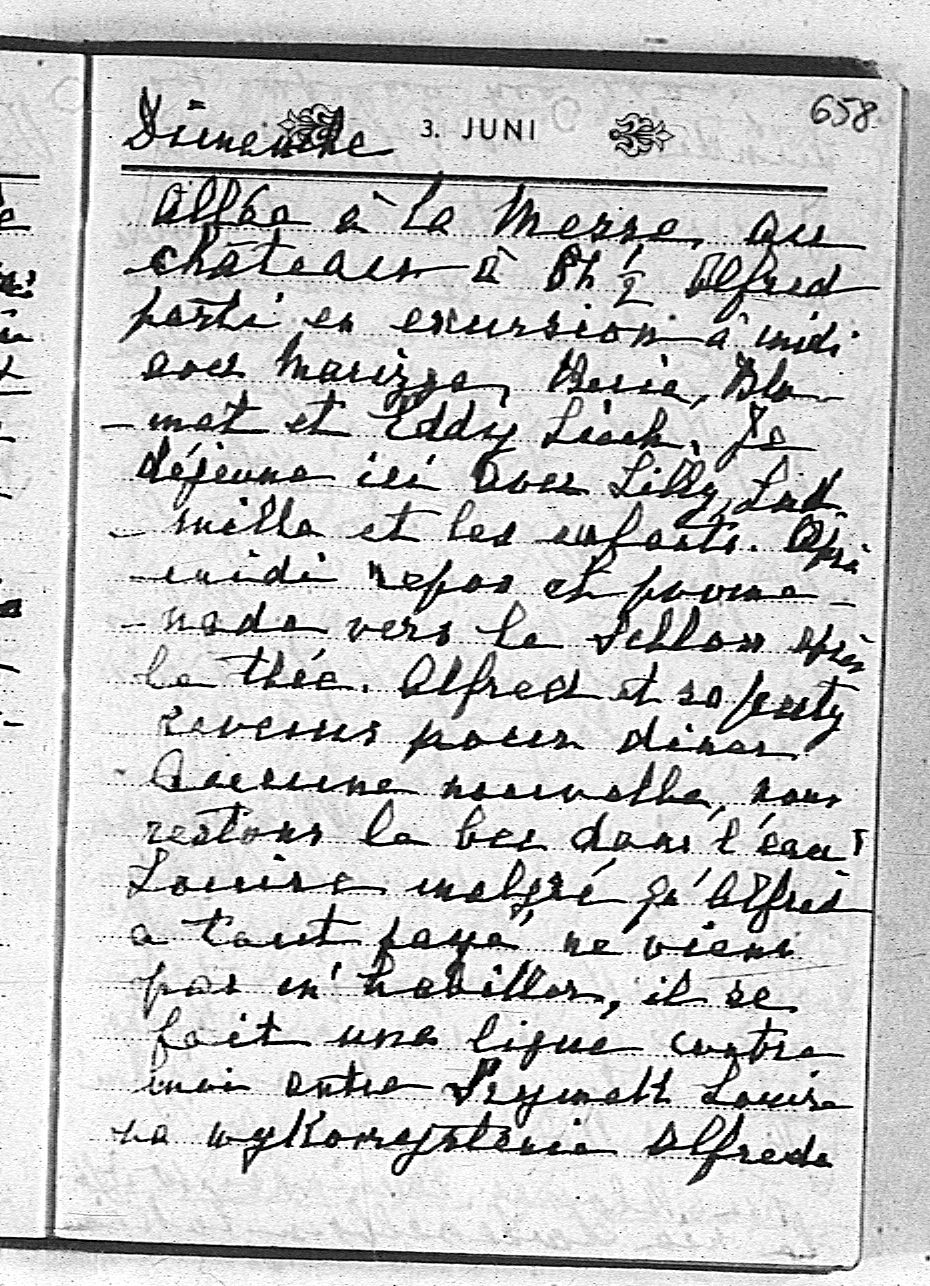 658.
Dimanche 3. JUNI
Allée à la Messe au
château à 8h ½ Alfred
parti en excursion à midi
avec Marizza,
- mat et Eddy Je
déjeune ici avec Lilly, Lud
- milla et les enfants. Aprè
- midi repos et prome -
- nade vers le après
le thée. Alfred et sa party
revenus pour diner
Aucune nouvelle, nous
restons le bec dans l'eau!
Louise malgré qu'Alfred
a tout payé ne vient
pas m'habiller, il se
fait une ligue contre
moi entre Louise
na Alfreda